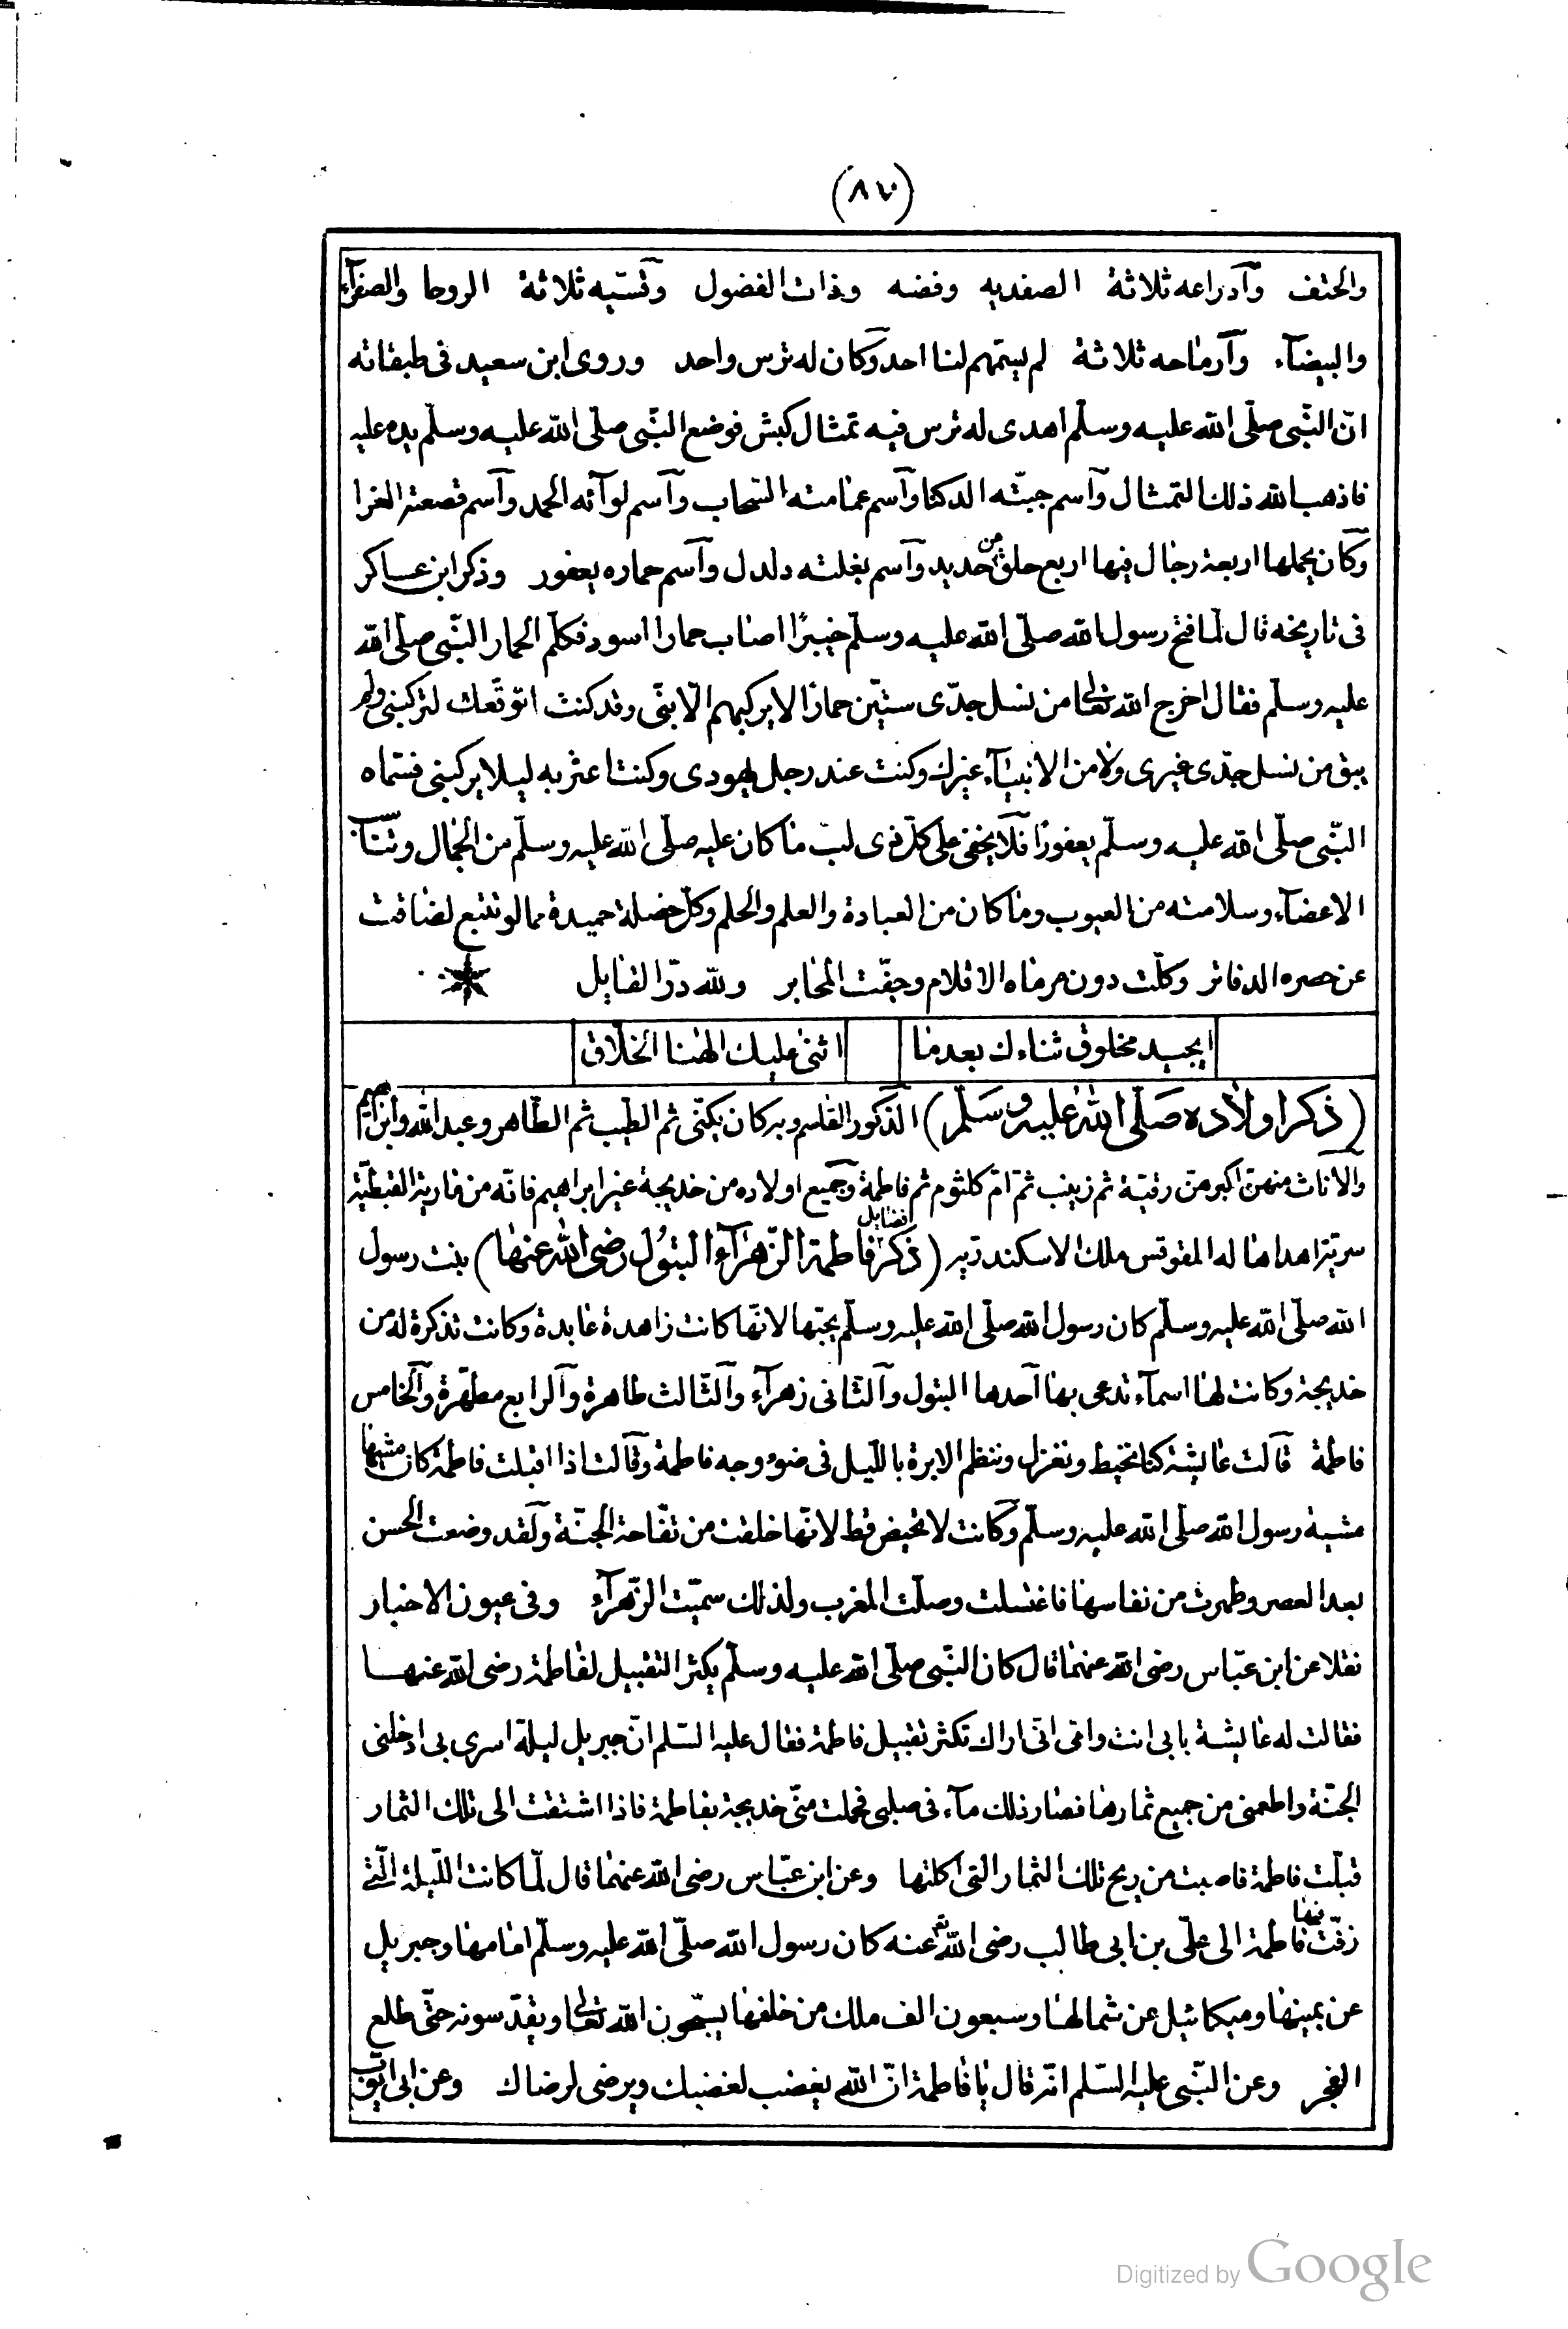 (٨٧)
والحتف وآدراعه ثلاثة الصفديه وفضه وذات الفضول وقسيه ثلاثة الروحا والصفرآء
والبيضآء وآرماحه ثلاثة لم يسمهم لنا احد وكان له ترس واحد وروى ابن سعيد فى طبقاته
انّ النّبى صلّى الله عليه وسلّم اهدى له ترس فيه تمثال كبش فوضع النّبى صلّى الله عليه وسلّم يده عليه
فاذهب الله ذلك التمثال وآسم جبّته الدكنا وآسم عمامته السّحاب وآسم لوآئه الحمد وآسم قصعته الغرا
وكان يحملها اربعة رجال فيها اربع حلق من حديد وآسم بغلته دلدل وآسم حماره يعفور وذكر ابن عساكر
فى تاريخه قال لمّا فتح رسول الله صلّى الله عليه وسلّم خيبرًا اصاب حمارا اسود فكلّم الحمار النّبى صلّى الله
عليه وسلّم فقال اخرج الله تعالى من نسل جدّى ستّين حمارًا لا يركبهم الّا نبّى وقد كنت اتوقّعك لتركبنى ولم
يبق من نسل جدّى غيرى ولا من الانبيآء غيرك وكنت عند رجل يهودى وكنت اعثر به ليلا يركبنى فسّماه
النّبى صلّى الله عليه وسلّم يعفورًا فلا يخفى على كلّ ذى لبّ ما كان عليه صلّى الله عليه وسلّم من الجمال وتناسب
الاعضآء وسلامته من العيوب وما كان من العبادة والعلم والحلم وكلّ خصلة حميدة مما لو تتبع لضاقت
عن حصره الدفاتر وكلّت دون مرماه الاقلام وجفّت المحابر ولله درّ القايل
ايجيد مخلوق ثناءك بعدما اثنى عليك الهنا الخلّاق
(ذكر اولاده صَلّى الله عليه وسَلّم) الذّكور القاسم وبه كان يكنّى ثم الطّيب ثم الطّاهر وعبد الله وابراهيم
والاناث منهنّ اكبرهنّ رقيّة ثم زينب ثمّ امّ كلثوم ثم فاطمة وجميع اولاده من خديجة غير ابراهيم فانّه من مارية القبطيّة
سريّة اهداها له المقوقس ملك الاسكندريّه (ذكر فضايل فاطمة الزّهرآء البتول رضى الله عنها) بنت رسول
الله صلّى الله عليه وسلّم كان رسول الله صلّى الله عليه وسلّم يحبّها لانّها كانت زاهدة عابدة وكانت تذكرة له من
خديجة وكانت لها اسمآء تدعى بها آحدها البتول وآلثّانى زهرآء وآلثّالث طاهرة وآلرابع مطهّرة وآلخامس
فاطمة قآلت عايشة كنا نخيط ونغزل وننظم الابرة بالليّل فى ضوء وجه فاطمة وقآلت اذا اقبلت فاطمة كان مشيها
مشية رسول الله صلّى الله عليه وسلّم وكانت لا تحيض قط لانّها خلقت من تفّاحة الجنّة ولقد وضعت الحسن
بعد العصر وطهرت من نفاسها فاغتسلت وصلّت المغرب ولذلك سميّت الزّهرآء وفى عيون الاخبار
نقلا عن ابن عبّاس رضى الله عنهما قال كان النّبى صلّى الله عليه وسلّم يكثر التقبيل لفاطمة رضى الله عنها
فقالت له عايشة بابى انت وامّى انّى اراك تكثر تقبيل فاطمة فقال عليه السّلم انّ جبريل ليلة اسرى بى ادخلنى
الجنّة واطعمنى من جميع ثمارها فصار ذلك مآء فى صلبى فحملت منّى خديجة بفاطمة فاذا اشتقت الى تلك الثمار
قبلّت فاطمة فاصبت من ريح تلك الثمار التى اكلتها وعن ابن عبّاس رضى الله عنهما قال لمّا كانت الليّلة الّتى
زفّت فيها فاطمة الى علّى بن ابى طالب رضى الله عنه كان رسول الله صلّى الله عليه وسلّم امامها وجبريل
عن يمينها وميكائيل عن شمالها وسبعون الف ملك من خلفها يسبّحون الله تعالى ويقدّسونه حتّى طلع
الفجر وعن النّبى عليه السّلم انّه قال يا فاطمة انّ الله يغضب لغضبك ويرضى لرضاك وعن ابى ايّوب
Digitized by Google